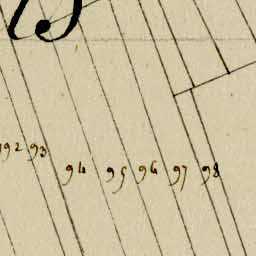 92 93
94 95 96 97 98